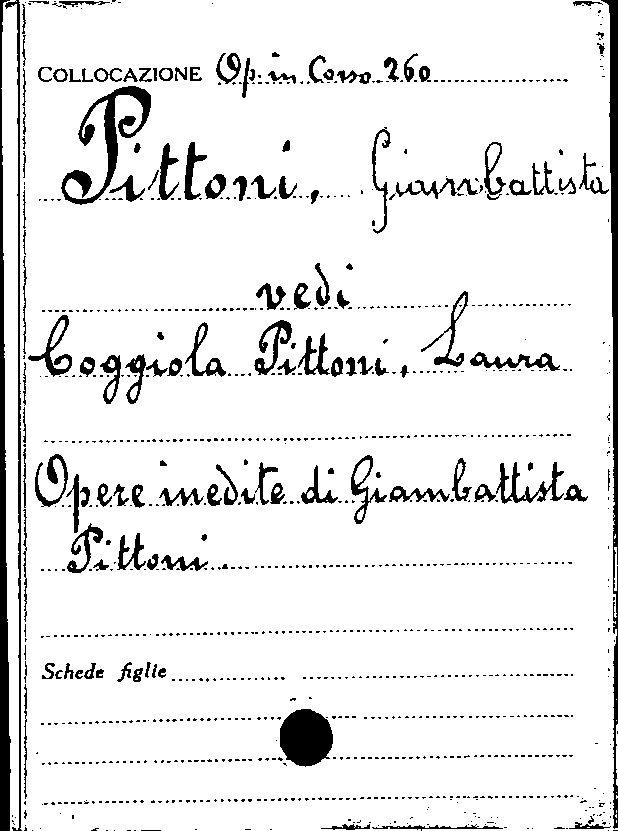 COLLOCAZIONE Op. in Corso 260
Pittoni, Giambattista
vedi
Coggiola Pittoni, Laura
Opere inedite di Giambattista
Pittoni.
Schede figlie